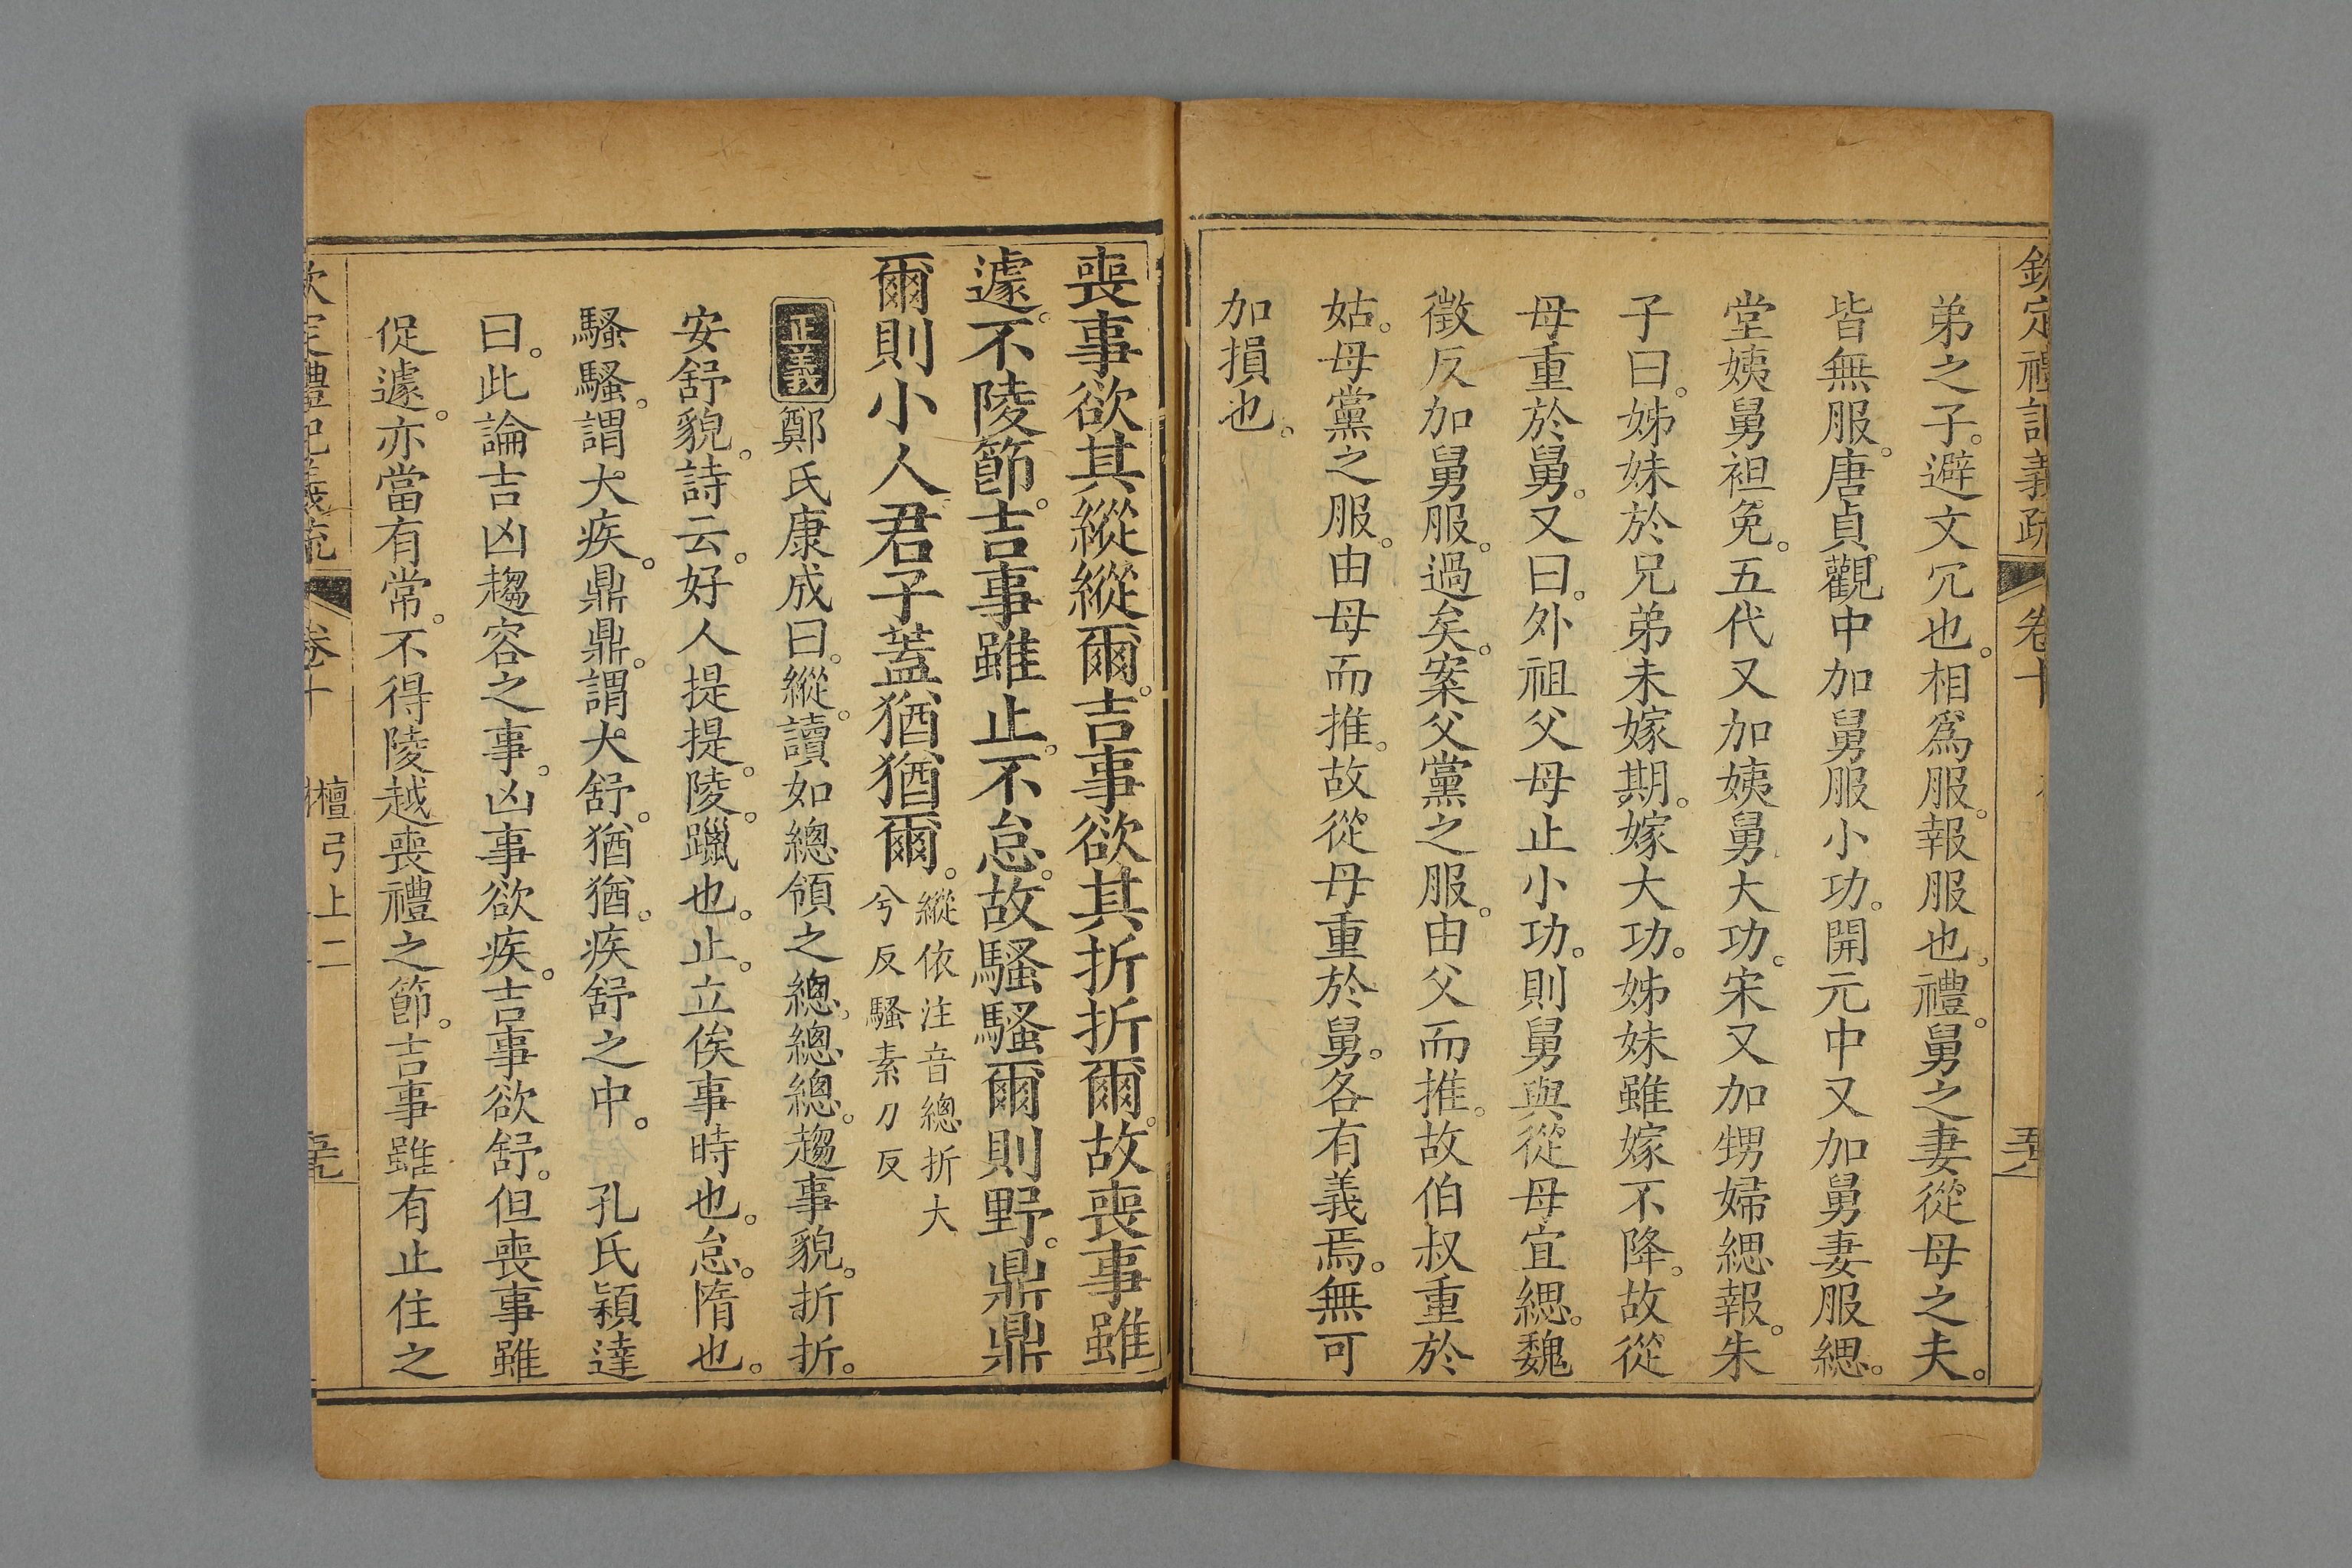 欽定禮記義疏 卷十
弟之子。避文冗也。相爲服。報服也。禮。舅之妻從母之夫。
皆無服。唐貞觀中加舅服小功。開元中又加舅妻服緦。
堂姨舅袒免。五代又加姨舅大功。宋又加甥婦緦報。朱
子曰。姊妹於兄弟未嫁期。嫁大功。姊妹雖嫁不降。故從
母重於舅。又曰。外祖父母止小功。則舅與從母宜緦。魏
徵反加舅服。過矣。案父黨之服。由父而推。故伯叔重於
姑。母黨之服。由母而推。故從母重於舅。各有義焉。無可
加損也。
喪事欲其縱縱爾。吉事欲其折折爾。故喪事雖
遽。不陵節。吉事雖止。不怠。故騷騷爾則野。鼎鼎
爾則小人。君子蓋猶猶爾。
縱依注音總折大
兮反騷素刀反
正義 鄭氏康成曰。縱。讀如總領之總。總總。趨事貌。折折。
安舒貌。詩云。好人提提。陵。躐也。止。立俟事時也。怠。惰也。
騷騷。謂大疾。鼎鼎。謂大舒。猶猶。疾舒之中。 孔氏穎達
曰。此論吉凶趨容之事。凶事欲疾。吉事欲舒。但喪事雖
促遽。亦當有常。不得陵越喪禮之節。吉事雖有止住之
欽定禮記義疏 卷十 檀弓上二